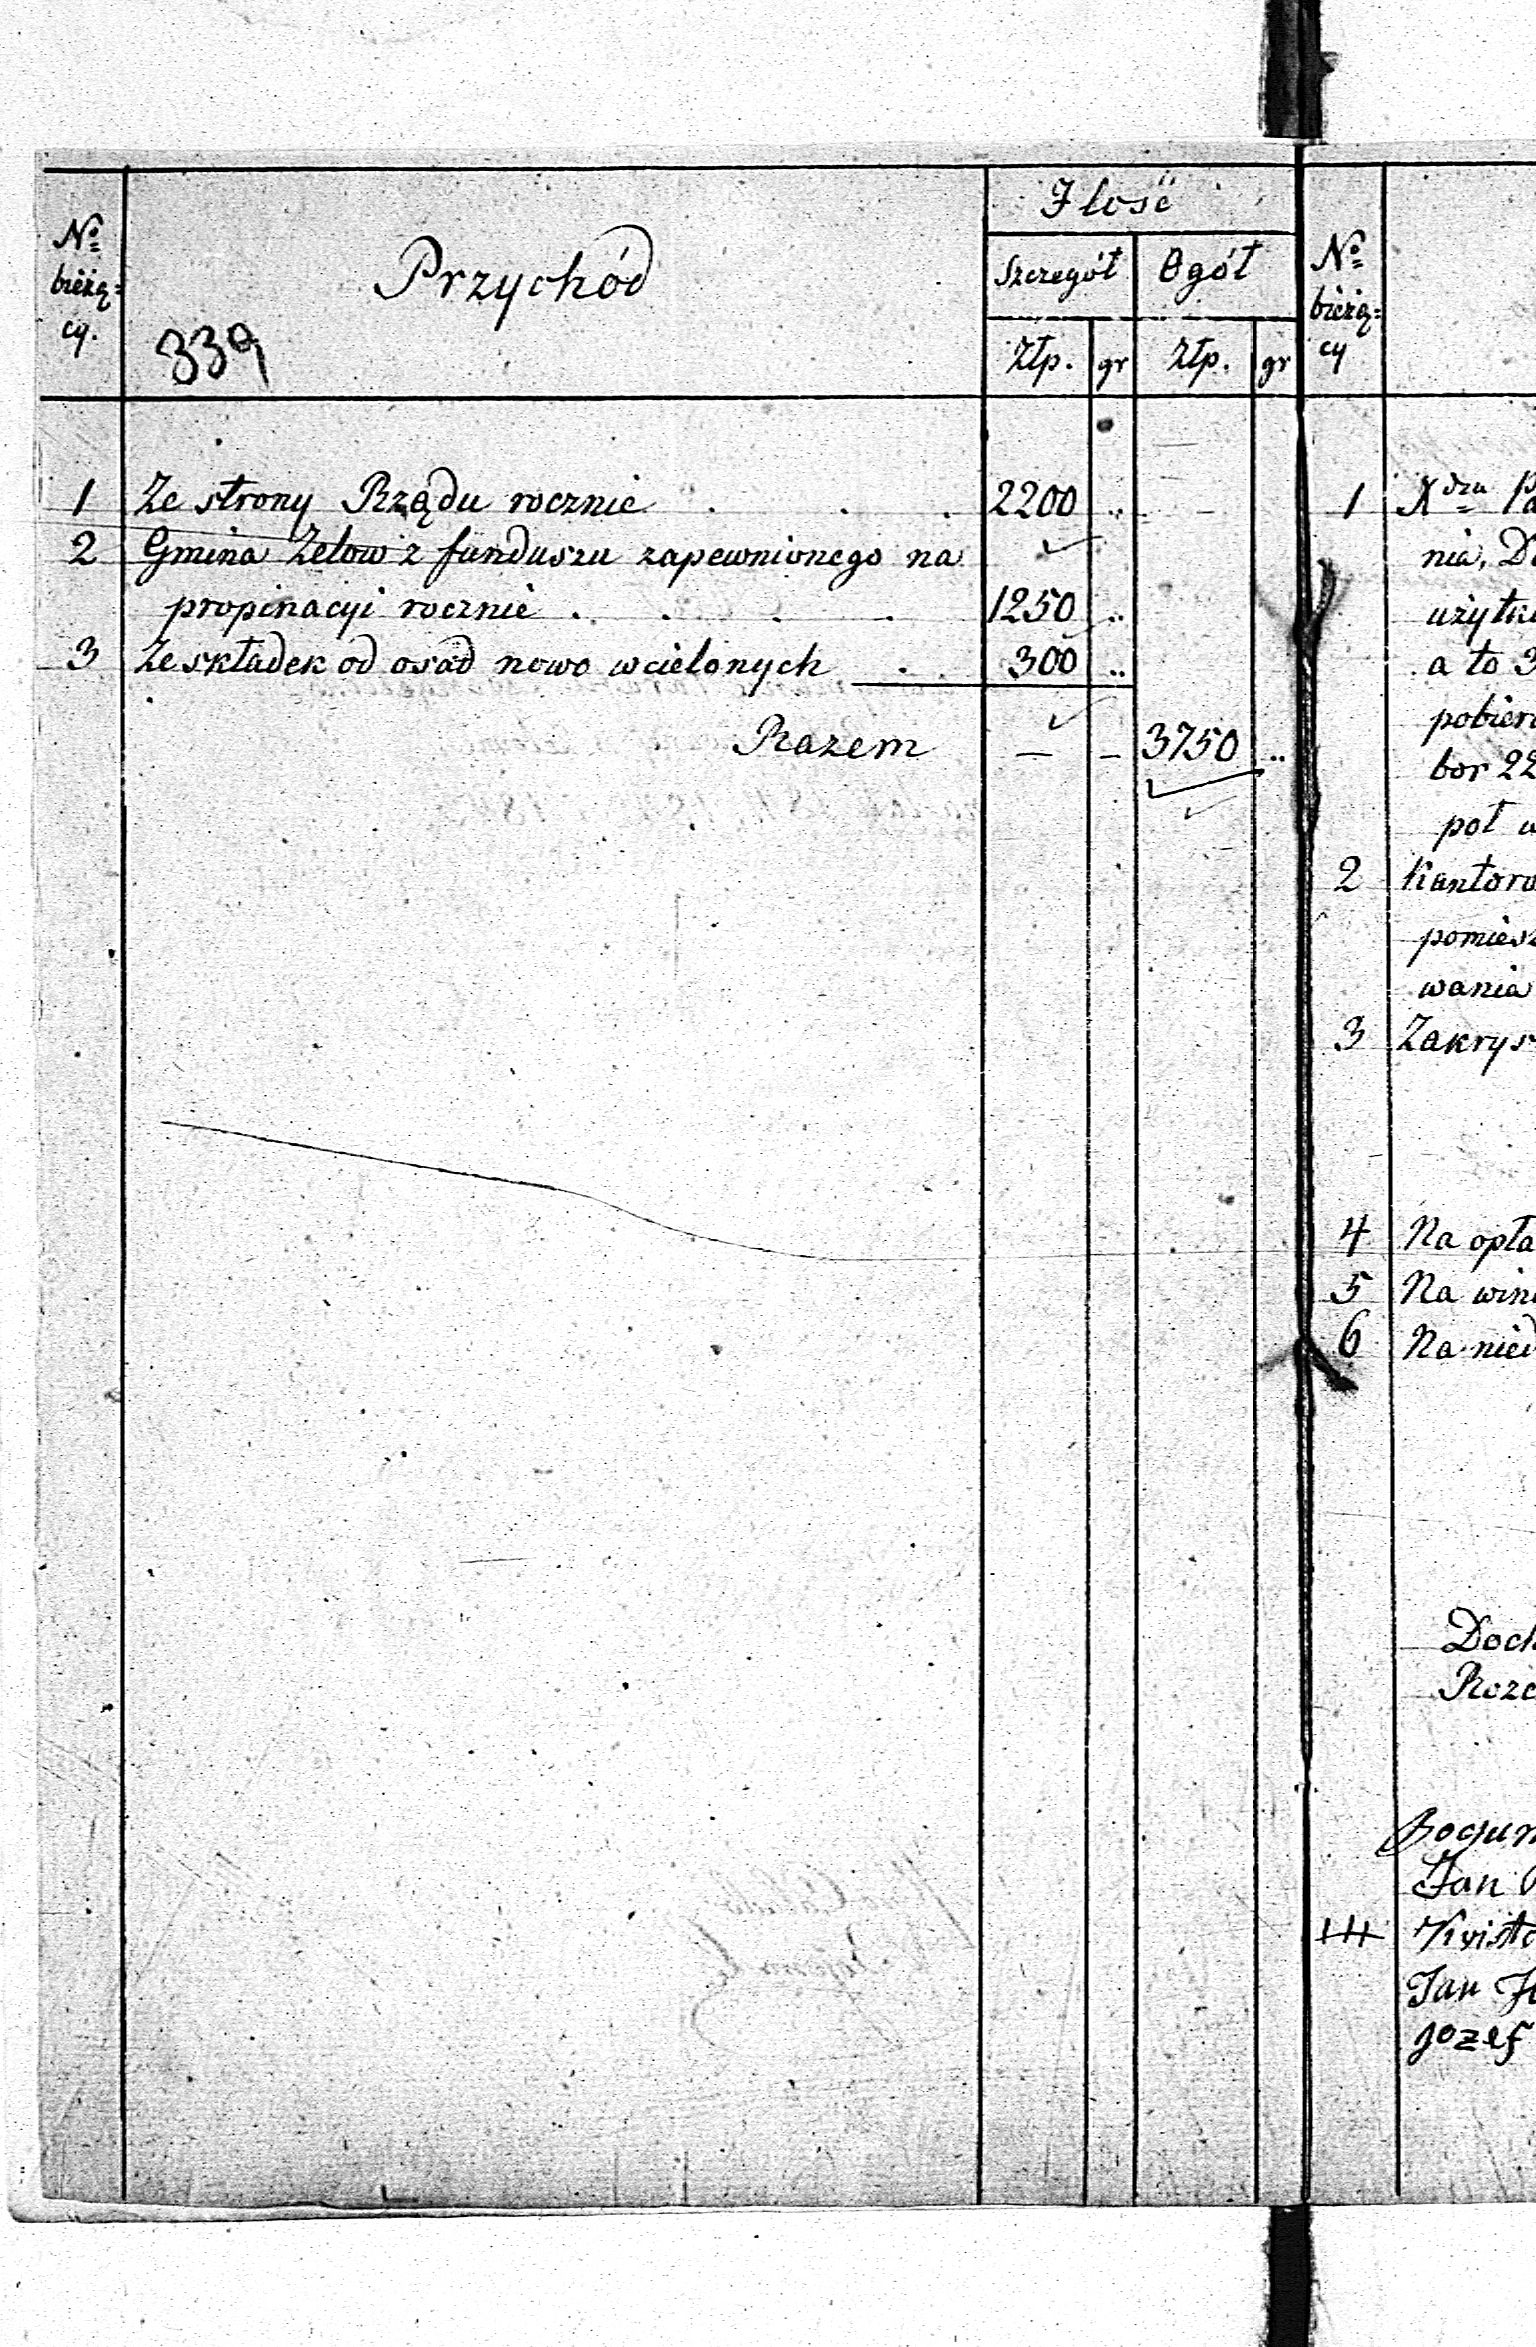 No bieżą= cy.
Przychód
339
Jlość
Szczegół Ogół
Złp. gr Złp. gr
1 Ze strony Rządu rocznie . . . 2200 ..
2 Gmina Zelow z funduszu zapewnionego na
propinacyi rocznie . . . . 1250 ..
3 Ze składek od osad nowo wcielonych . 300 ..
Razem — – 3750 ..
No bieżą= cy
1 Xdza
nia,
użytk
a to 3
pobier
bor 22
poł
2 Kantoro
pomiesz
wania
3 Zakrys
4 Na opła
5 Na win
6 Na nied
Doch
Rozc
Jan
Jan
Jozef